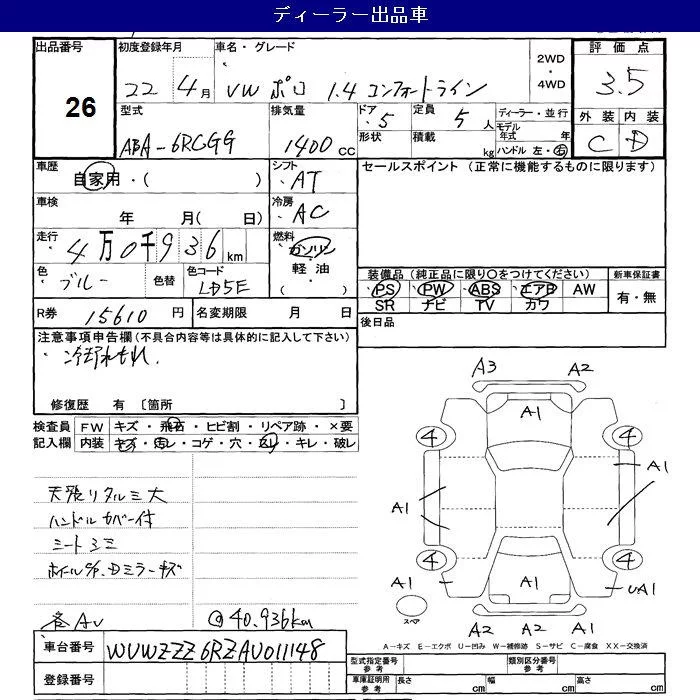 ディーラー出品車
出品番号 初度登録年月 車名・グレード 評価点
26 22年4月 VW ポロ 1.4 コンフォートライン 2WD・4WD 3.5
型式 排気量 ドア 定員 ディーラー・並行 外装 内装
ABA-6RCGG 1400cc 5 5人 モデル年式 年 C D
形状 積載 kg ハンドル 左・右
車歴 シフト セールスポイント (正常に機能するものに限ります)
自家用・( ) AT
車検 冷房
年 月( 日) AC
走行 燃料
4万0千936km ガソリン
軽油
( )
色 色替 色コード 装備品(純正品に限り○をつけてください) 新車保証書
ブルー LD5E PS PW ABS エアB AW 有・無
SR ナビ TV カワ
R券 15610円 名変期限 月 日 後日品
注意事項申告欄(不具合内容等は具体的に記入して下さい)
冷却水もれ.
修復歴 有 [箇所 ]
検査員 FW キズ・飛石・ヒビ割・リペア跡・×要
記入欄 内装 キズ・汚レ・コゲ・穴・スレ・キレ・破レ
天張リタルミ大
ハンドルカバー付
シートシミ
@40.936km
A3 A2
A1
4 4
A1
A1 A1
4 4
A1 A1 UA1
スペア A2 A2
A-キズ E-エクボ U-凹み W-補修跡 S-サビ C-腐食 XX-交換済
車台番号 WVWZZZ6RZAU011148
型式指定番号 参考 類別区分番号 参考
登録番号
車庫証明用 参考 長さ cm 幅 cm 高さ cm